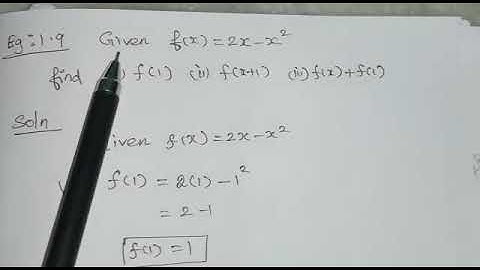 Eg:1.9 Given f(x)=2x-x²
find (i) f(1) (ii) f(x+1) (iii) f(x)+f(1)
Soln
Given f(x)=2x-x²
f(1) = 2(1)-1²
= 2-1
f(1) = 1